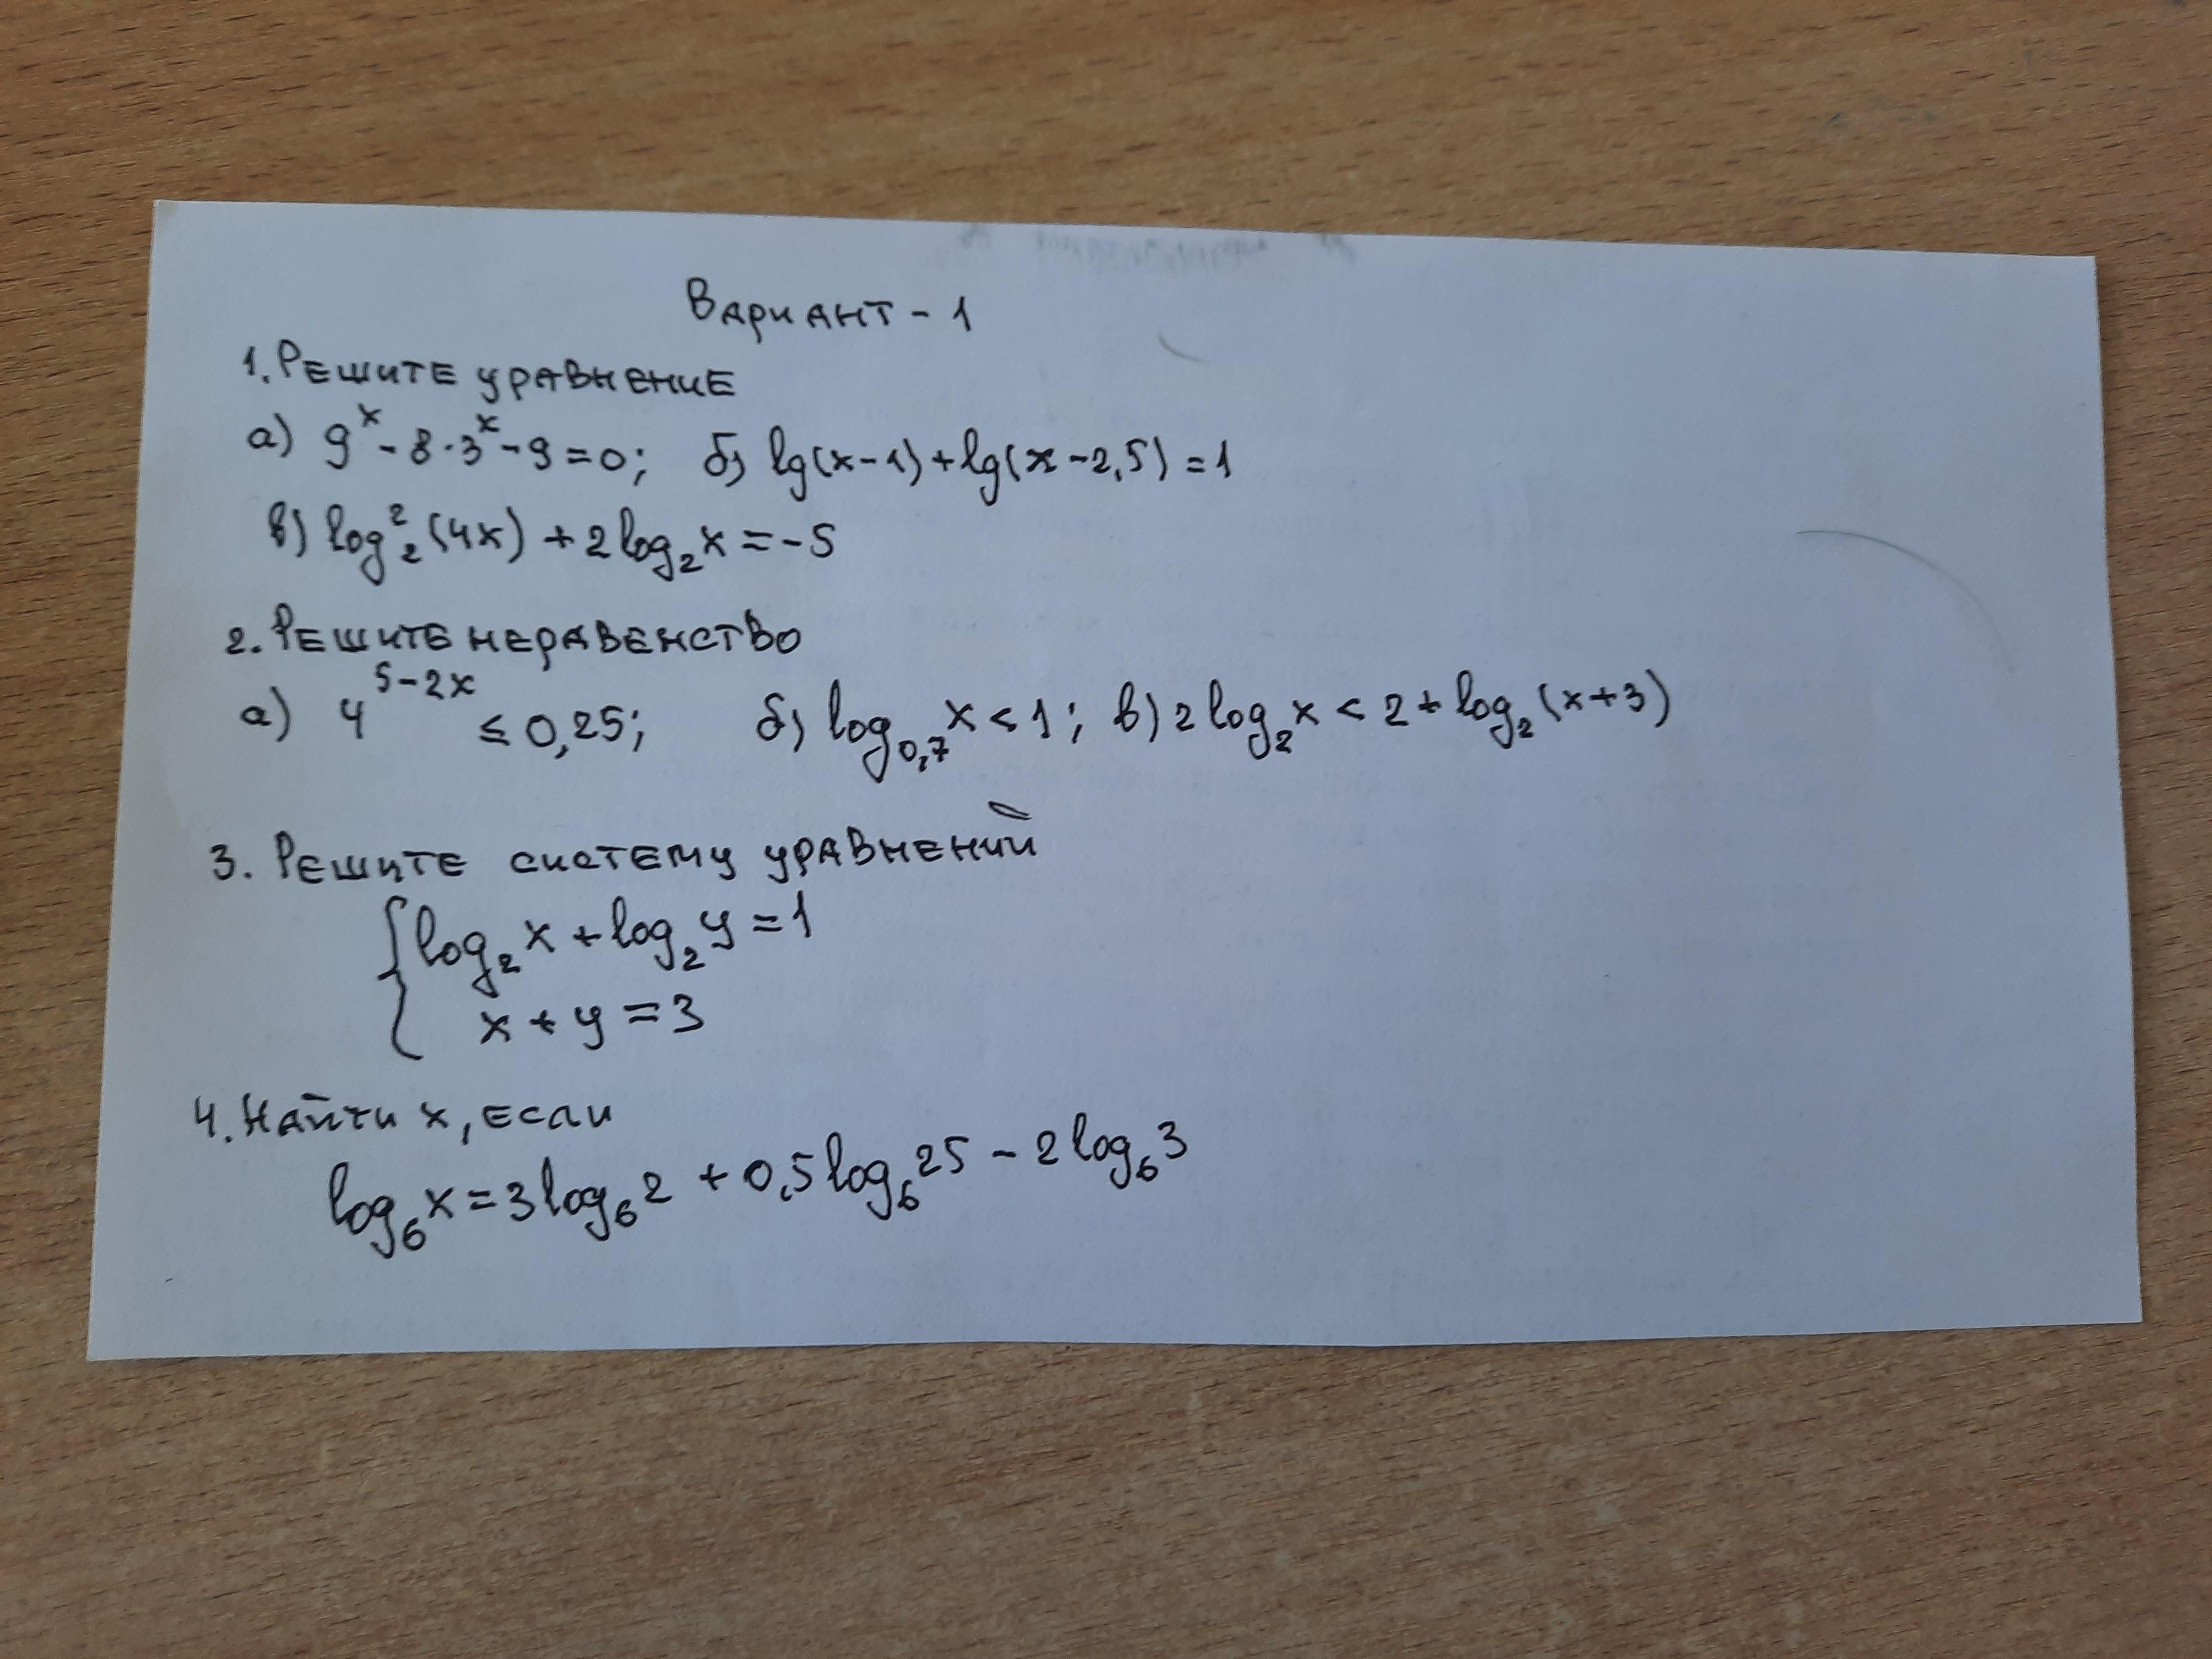 Вариант - 1
1. Решите уравнение
а) 9^x - 8·3^x - 9 = 0; б) lg(x-1) + lg(x-2,5) = 1
в) log₂²(4x) + 2log₂x = -5
2. Решите неравенство
а) 4^(5-2x) ≤ 0,25; б) log₀,₇x < 1; в) 2log₂x < 2 + log₂(x+3)
3. Решите систему уравнений
{ log₂x + log₂y = 1
x + y = 3
4. Найти x, если
log₆x = 3log₆2 + 0,5log₆25 - 2log₆3